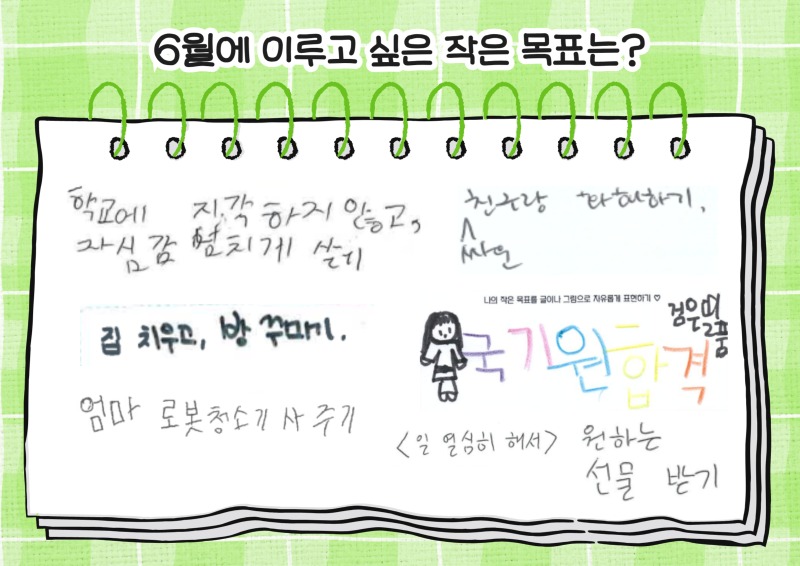 6월에 이루고 싶은 작은 목표는?
학교에 지각하지 않고,
자신감 넘치게 살기
친구랑 화해하기.
싸운
집 치우고, 방 꾸마기.
나의 작은 목표를 글이나 그림으로 자유롭게 표현하기 ♡
국기원합격
검은띠
2품
엄마 로봇청소기 사 주기
<일 열심히 해서> 원하는
선물 받기